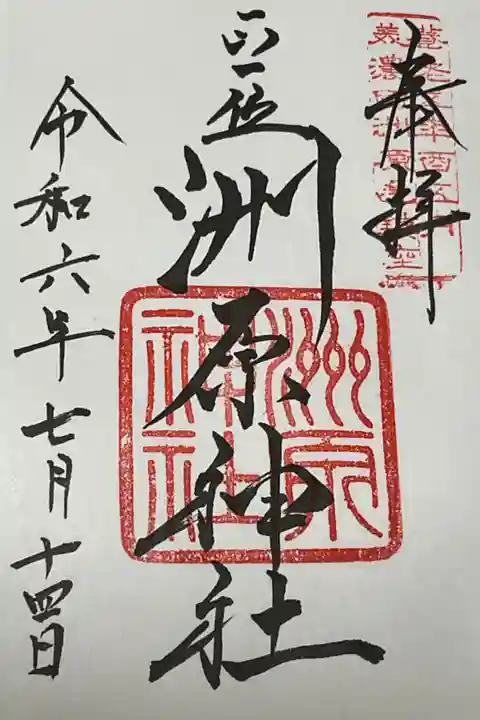 奉拝
正一位
洲原神社
洲原
神社
令和六年七月十四日